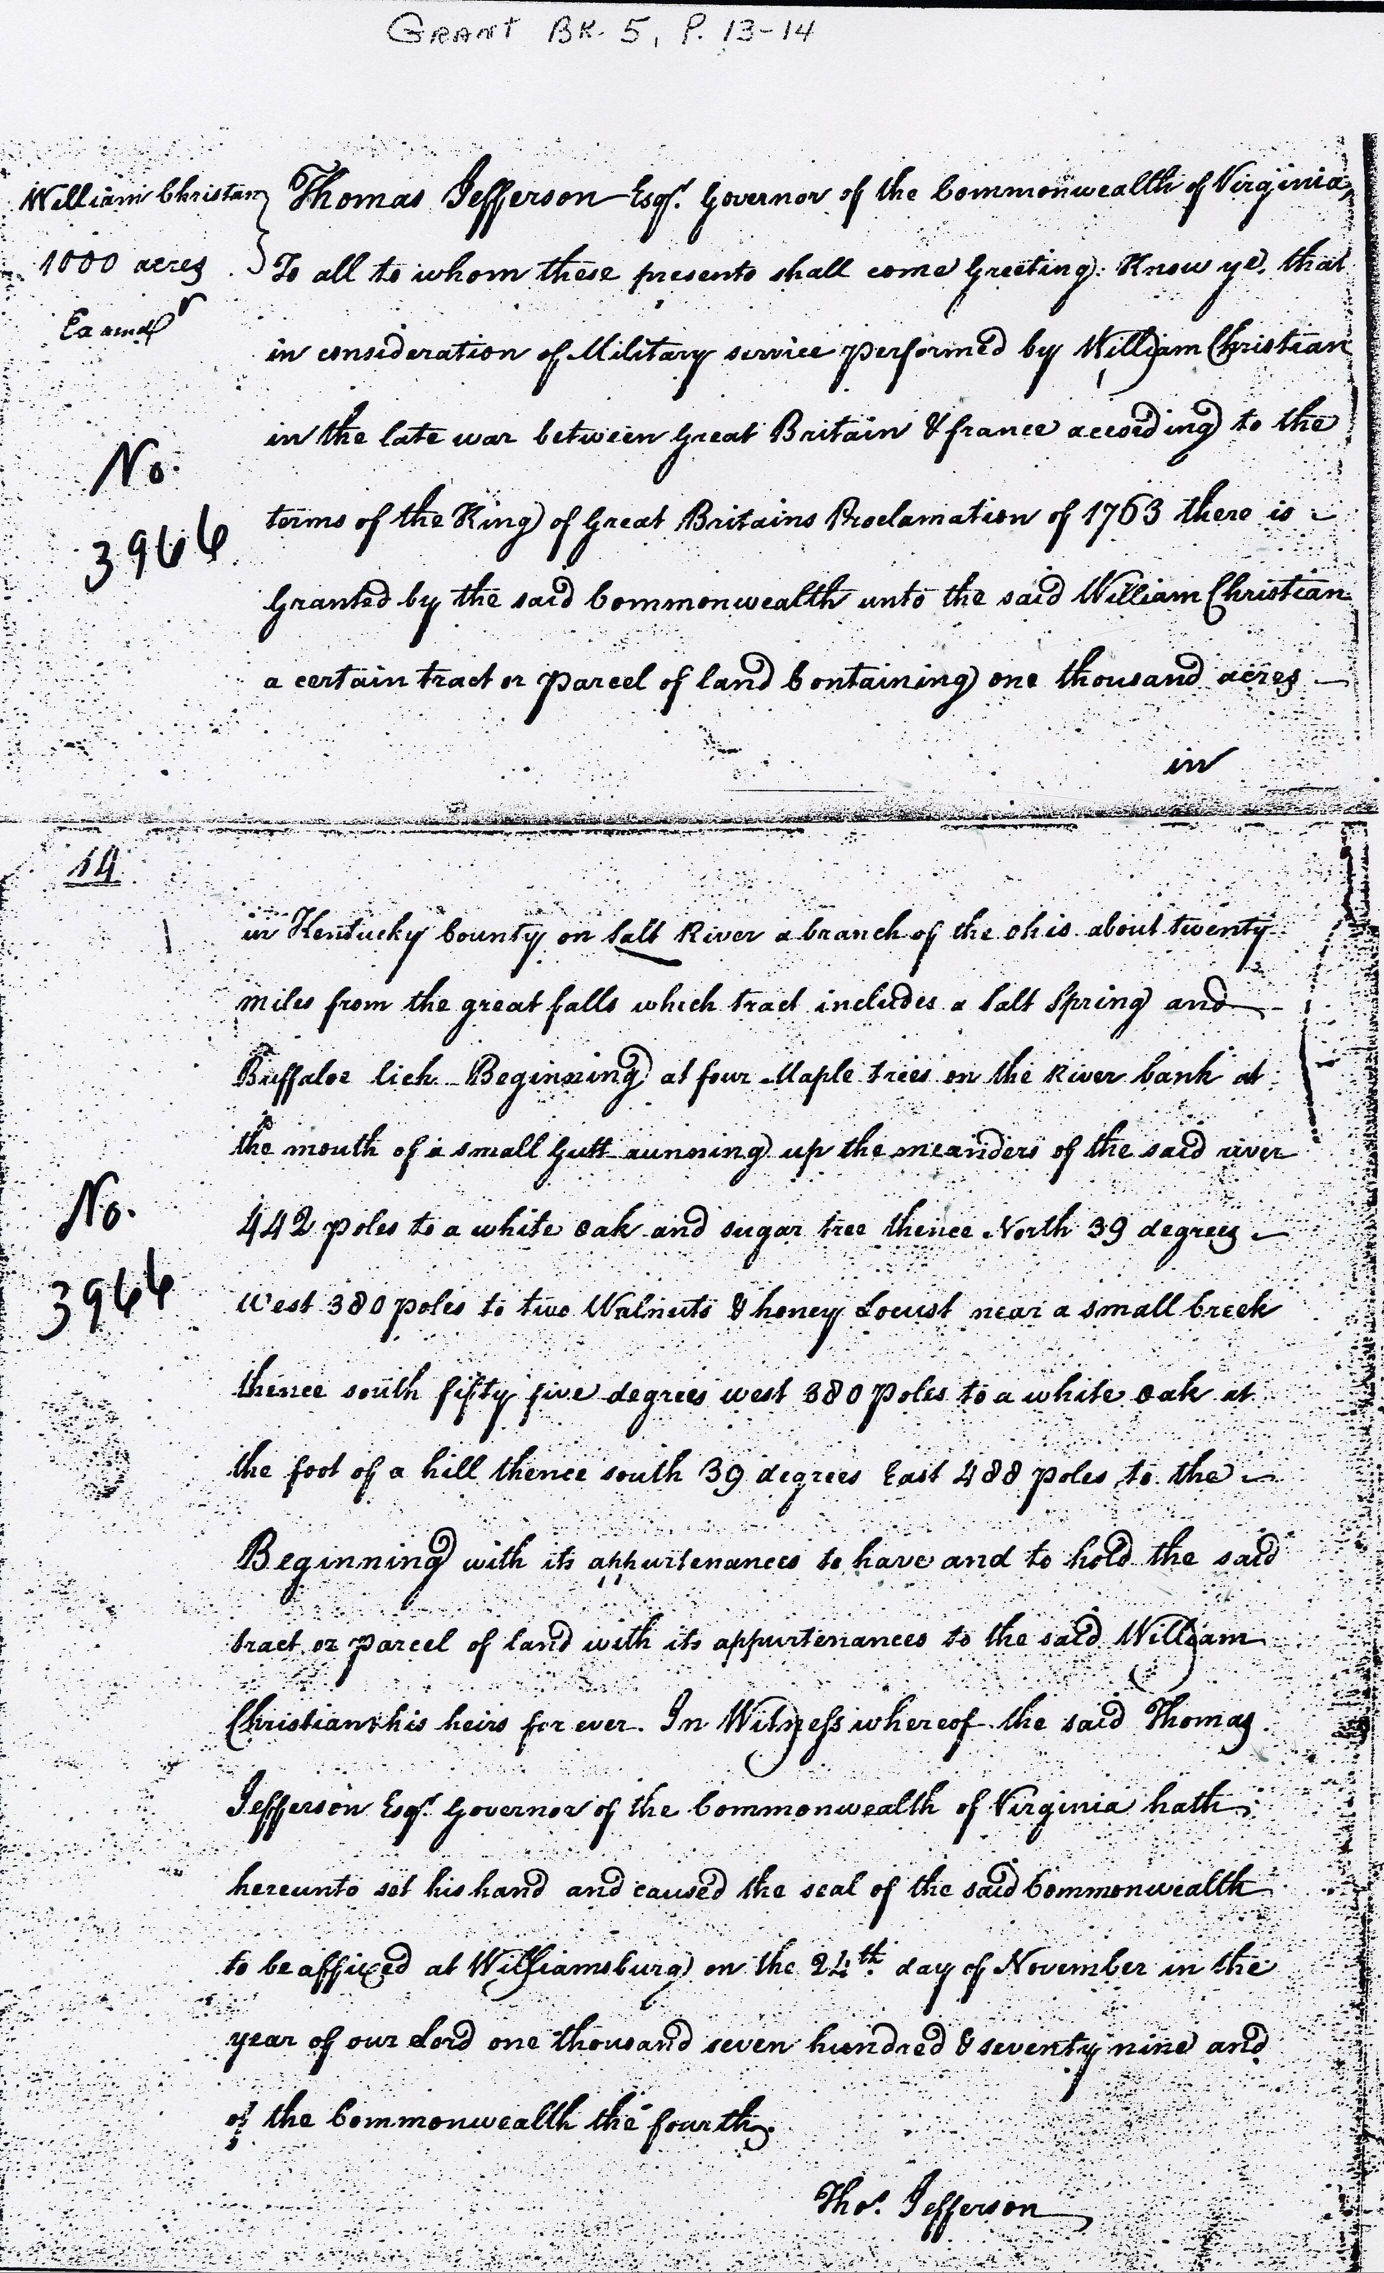 GRANT BK. 5, P. 13-14
William Christian
1000 acres
Examd r
Thomas Jefferson Esqr. Governor of the Commonwealth of Virginia,
To all to whom these presents shall come Greeting: Know ye, that
in consideration of Military service performed by William Christian
in the late war between Great Britain & france according to the
terms of the King of Great Britains Proclamation of 1763 there is
Granted by the said Commonwealth unto the said William Christian
a certain tract or parcel of land Containing one thousand acres
in
No.
3966
14
in Kentucky County on Salt River a branch of the Ohio about twenty
miles from the great falls which tract includes a Salt Spring and
Buffaloe lick Beginning at four Maple trees on the River bank at
the mouth of a small Gutt running up the meanders of the said river
442 poles to a white oak and sugar tree thence North 39 degrees
West 380 poles to two Walnuts & honey Locust near a small Creek
thence south fifty five degrees west 380 poles to a white oak at
the foot of a hill thence south 39 degrees East 488 poles to the
Beginning with its appurtenances to have and to hold the said
tract or parcel of land with its appurtenances to the said William
Christian & his heirs for ever. In Witness whereof the said Thomas
Jefferson Esqr. Governor of the Commonwealth of Virginia hath
hereunto set his hand and caused the seal of the said Commonwealth
to be affixed at Williamsburg on the 24th day of November in the
year of our Lord one thousand seven hundred & seventy nine and
of the Commonwealth the fourth.
Thos. Jefferson
No.
3966